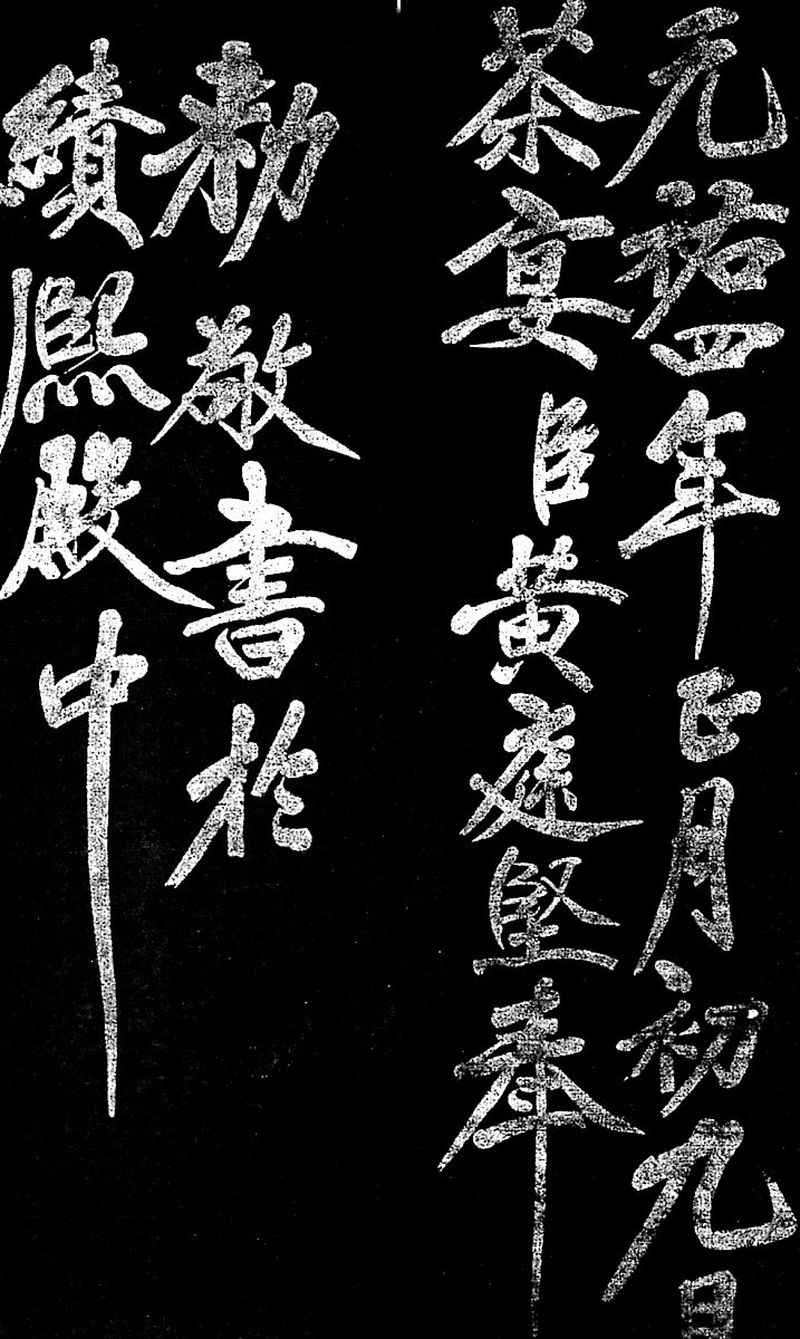 元祐四年正月初九日
茶宴臣黄庭堅奉
勑敬書於
績熙殿中